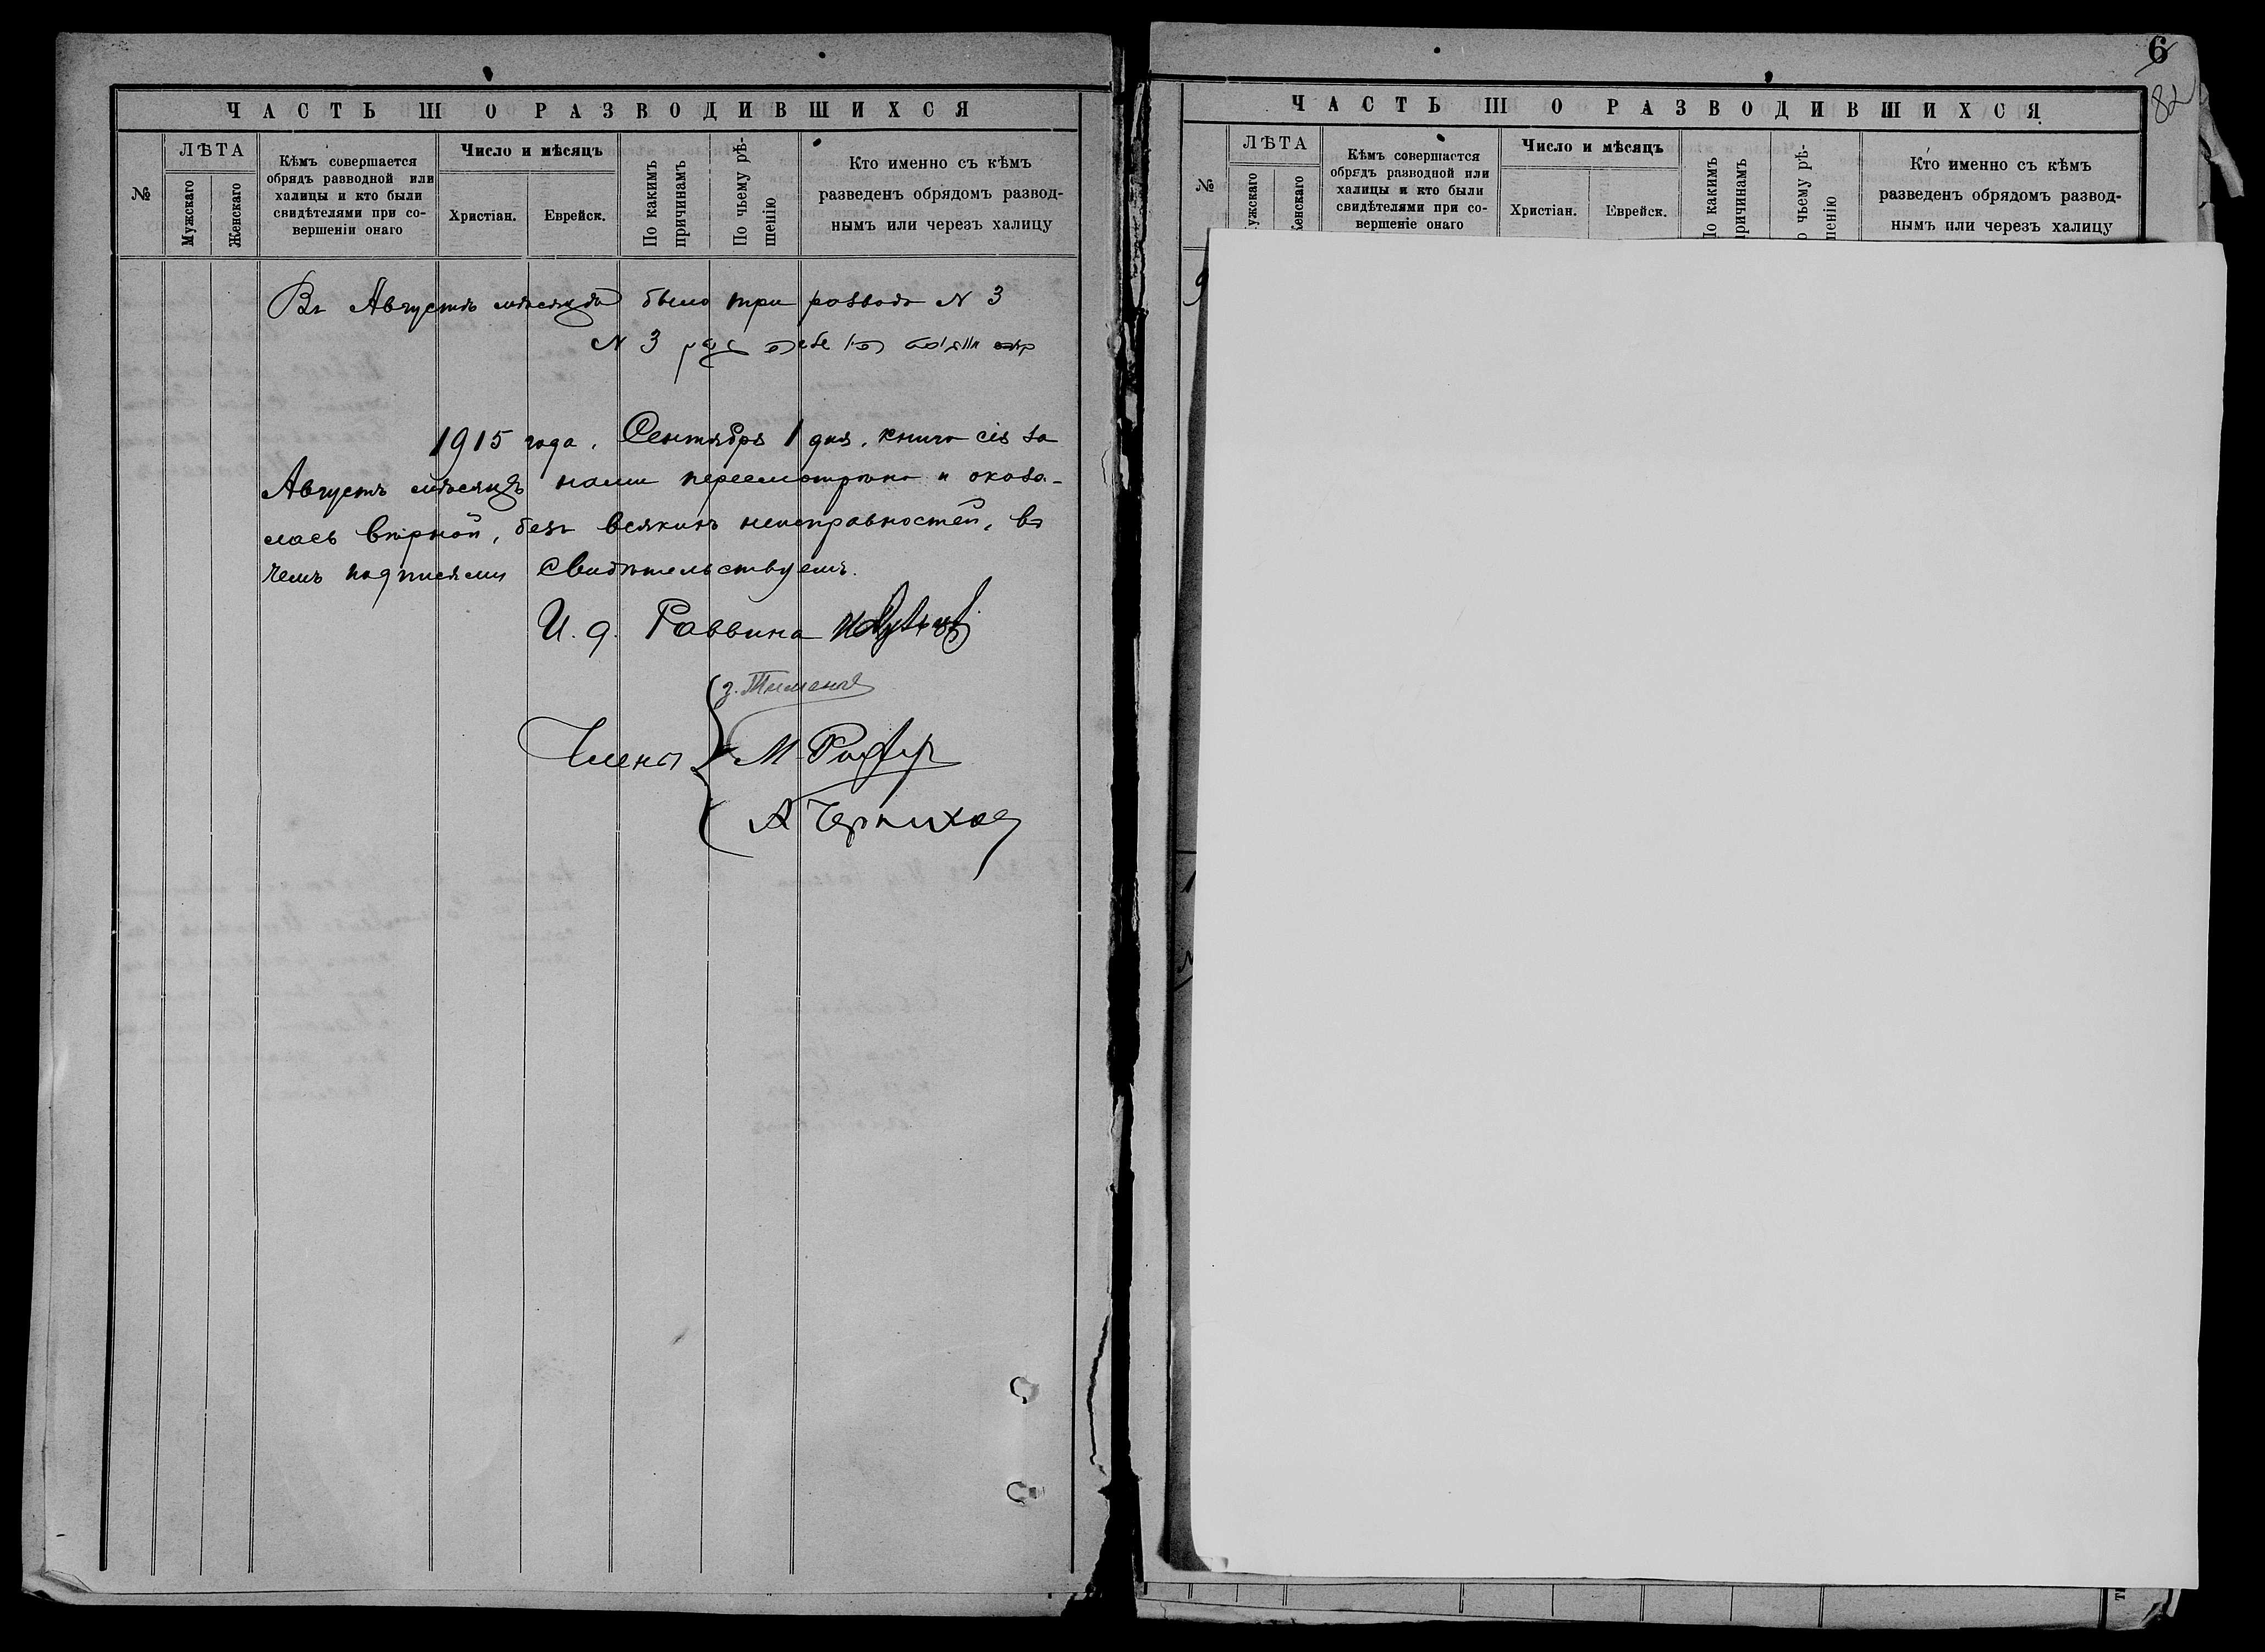 ЧАСТЬ III О РАЗВОДИВШИХСЯ
№
ЛѢТА
Мужскаго
Женскаго
Кѣмъ совершается
обрядъ разводной или
халицы и кто были
свидѣтелями при со-
вершеніи онаго
Число и мѣсяцъ
Христіан.
Еврейск.
По какимъ
причинамъ
По чьему рѣ-
шенію
Кто именно съ кѣмъ
разведенъ обрядомъ развод-
нымъ или черезъ халицу
Въ Августѣ мѣсяцѣ было три развода N 3
N 3
1915 года, Сентября 1 дня, книга сія за
Августъ мѣсяцъ нами пересмотрѣна и оказа-
лась вѣрной, безъ всякихъ неисправностей, въ
чемъ подписями свидѣтельствуемъ.
И. д. Раввина
Члены
М
А Чернихов
6
82
ЧАСТЬ III О РАЗВОДИВШИХСЯ
№
ЛѢТА
ужскаго
Женскаго
Кѣмъ совершается
обрядъ разводной или
халицы и кто были
свидѣтелями при со-
вершеніе онаго
Число и мѣсяцъ
Христіан.
Еврейск.
По какимъ
причинамъ
о чьему рѣ-
шенію
Кто именно съ кѣмъ
разведенъ обрядомъ развод-
нымъ или черезъ халицу
9